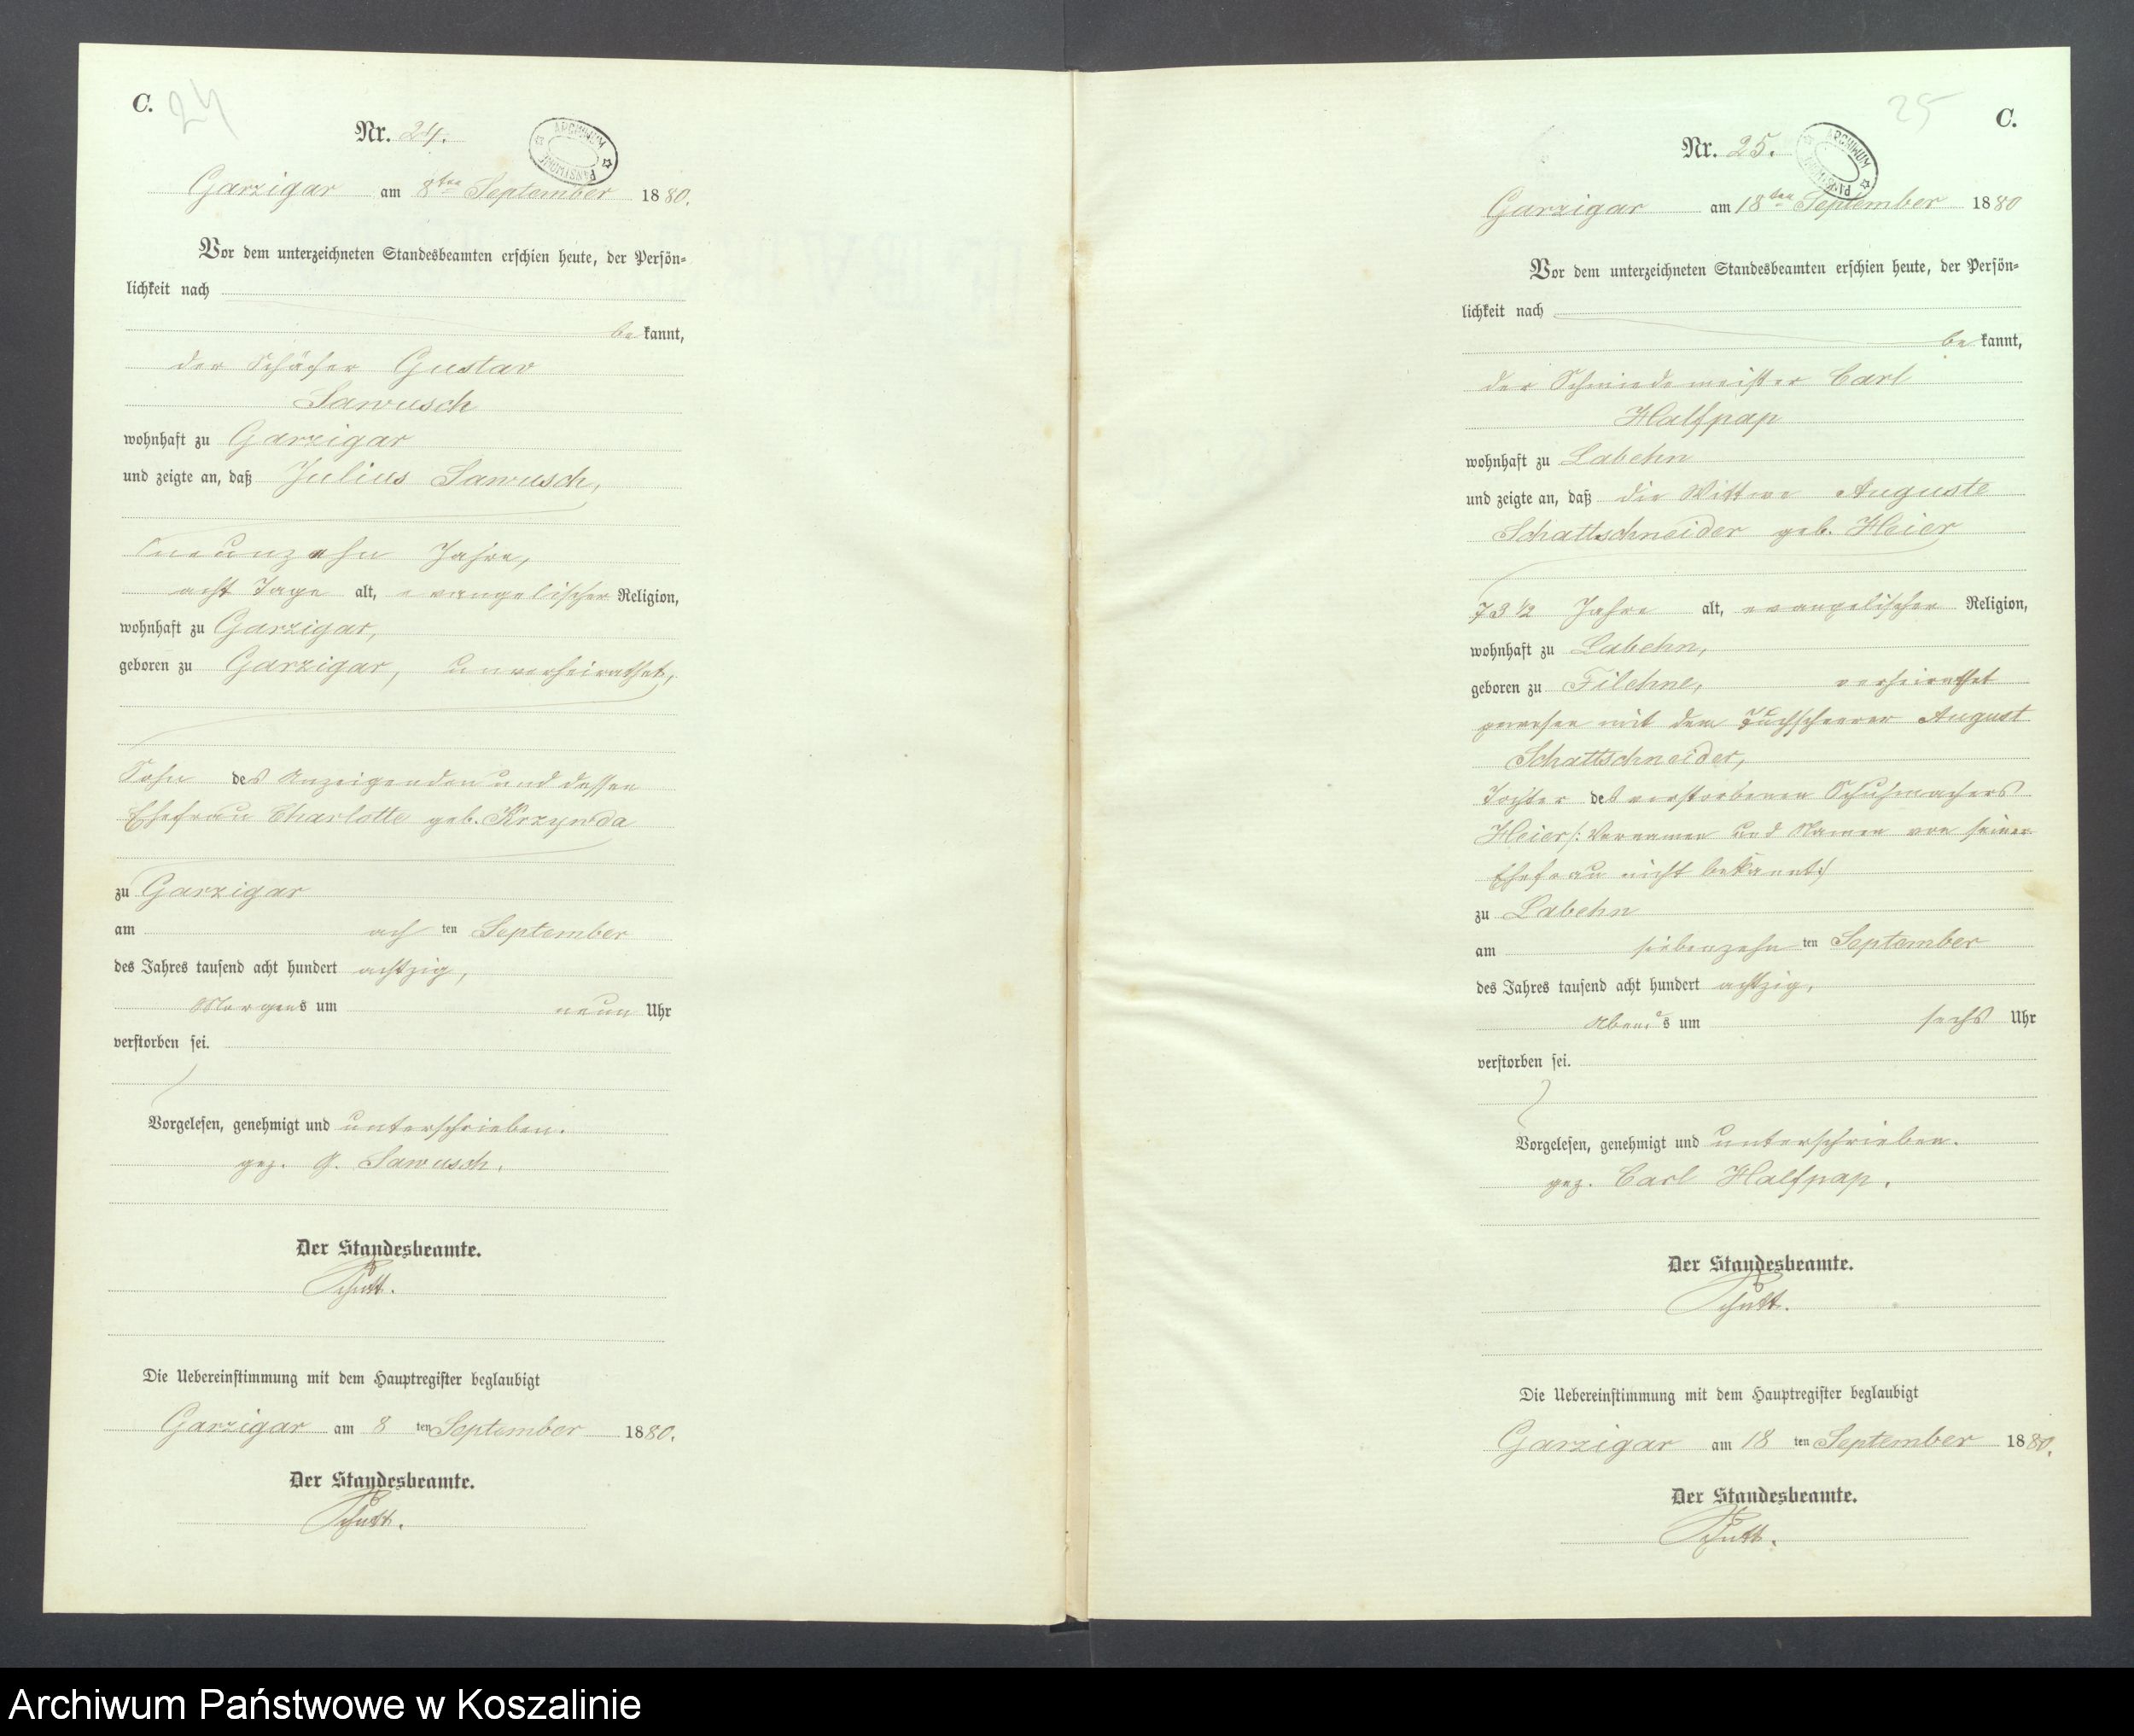 C. 24
Nr. 24.
ARCHIWUM PAŃSTWOWE
Garzigar am 8ten September 1880.
Vor dem unterzeichneten Standesbeamten erschien heute, der Persön-
lichkeit nach
bekannt,
der Schäfer Gustav
Sawusch
wohnhaft zu Garzigar
und zeigte an, daß Julius Sawusch,
neunzehn Jahre,
acht Tage alt, evangelischer Religion,
wohnhaft zu Garzigar,
geboren zu Garzigar, unverheirathet,
Sohn des Anzeigenden und dessen
Ehefrau Charlotte geb. Krzynda
zu Garzigar
am ach ten September
des Jahres tausend acht hundert achtzig,
Morgens um neun Uhr
verstorben sei.
Vorgelesen, genehmigt und unterschrieben.
gez. G. Sawusch.
Der Standesbeamte.
Schutt.
Die Uebereinstimmung mit dem Hauptregister beglaubigt
Garzigar am 8 ten September 1880.
Der Standesbeamte.
Schutt.
25 C.
Nr. 25.
ARCHIWUM PAŃSTWOWE
Garzigar am 18ten September 1880
Vor dem unterzeichneten Standesbeamten erschien heute, der Persön-
lichkeit nach
bekannt,
der Schmiedemeister Carl
Halfpap
wohnhaft zu Labehn
und zeigte an, daß die Wittwe Auguste
Schattschneider geb. Heier
73 1/2 Jahre alt, evangelischer Religion,
wohnhaft zu Labehn,
geboren zu Filehne, verheirathet
gewesen mit dem Tuchscheerer August
Schattschneider,
Tochter des verstorbenen Schuhmachers
Heier /: Vornamen und Namen von seiner
Ehefrau nicht bekannt :/
zu Labehn
am siebenzehn ten September
des Jahres tausend acht hundert achtzig,
Abends um sechs Uhr
verstorben sei.
Vorgelesen, genehmigt und unterschrieben.
gez. Carl Halfpap.
Der Standesbeamte.
Schutt.
Die Uebereinstimmung mit dem Hauptregister beglaubigt
Garzigar am 18 ten September 1880.
Der Standesbeamte.
Schutt.
Archiwum Państwowe w Koszalinie